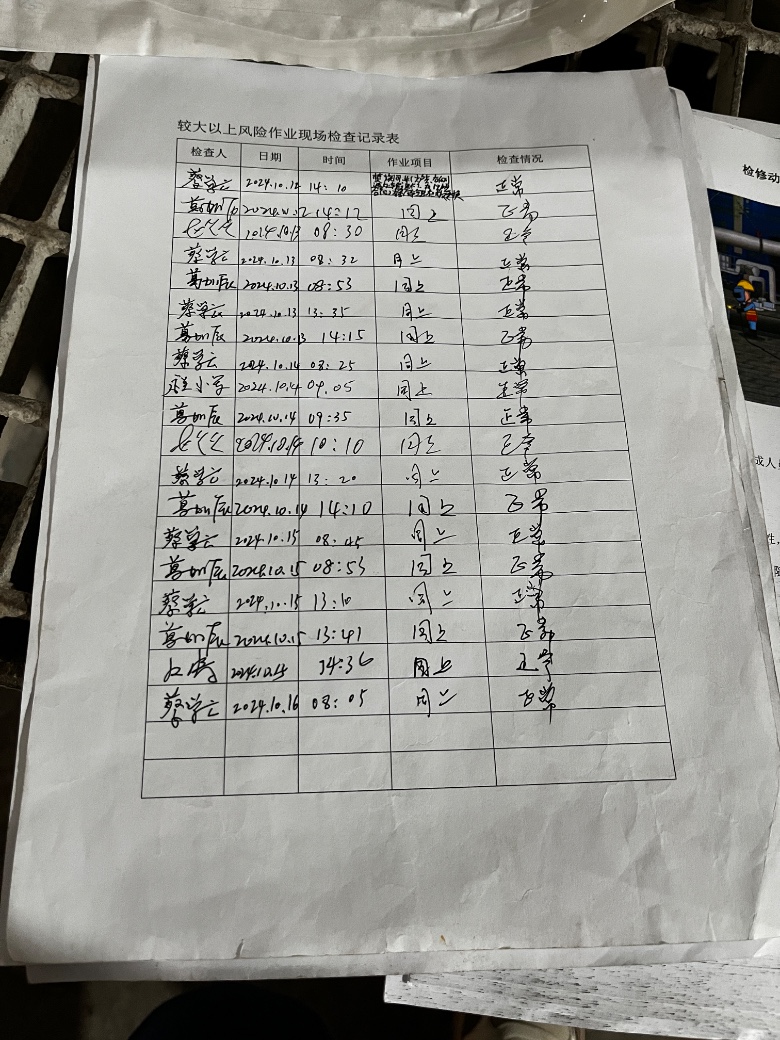 较大以上风险作业现场检查记录表
检查人 日期 时间 作业项目 检查情况
蔡学云 2024.10.12 14:10 正常
葛如辰 2024.10.12 14:12 同上 正常
2024.10.13 08:30 同上 正常
蔡学云 2024.10.13 08:32 同上 正常
葛如辰 2024.10.13 08:53 同上 正常
蔡学云 2024.10.13 13:35 同上 正常
葛如辰 2024.10.13 14:15 同上 正常
蔡学云 2024.10.14 08:25 同上 正常
2024.10.14 09.05 同上 正常
葛如辰 2024.10.14 09:35 同上 正常
2024.10.14 10:10 同上 正常
蔡学云 2024.10.14 13:20 同上 正常
葛如辰 2024.10.14 14:10 同上 正常
蔡学云 2024.10.15 08:45 同上 正常
葛如辰 2024.10.15 08:53 同上 正常
蔡学云 2024.10.15 13:10 同上 正常
葛如辰 2024.10.15 13:41 同上 正常
14:36 同上 正常
蔡学云 2024.10.16 08:05 同上 正常
检修动
成人
性,